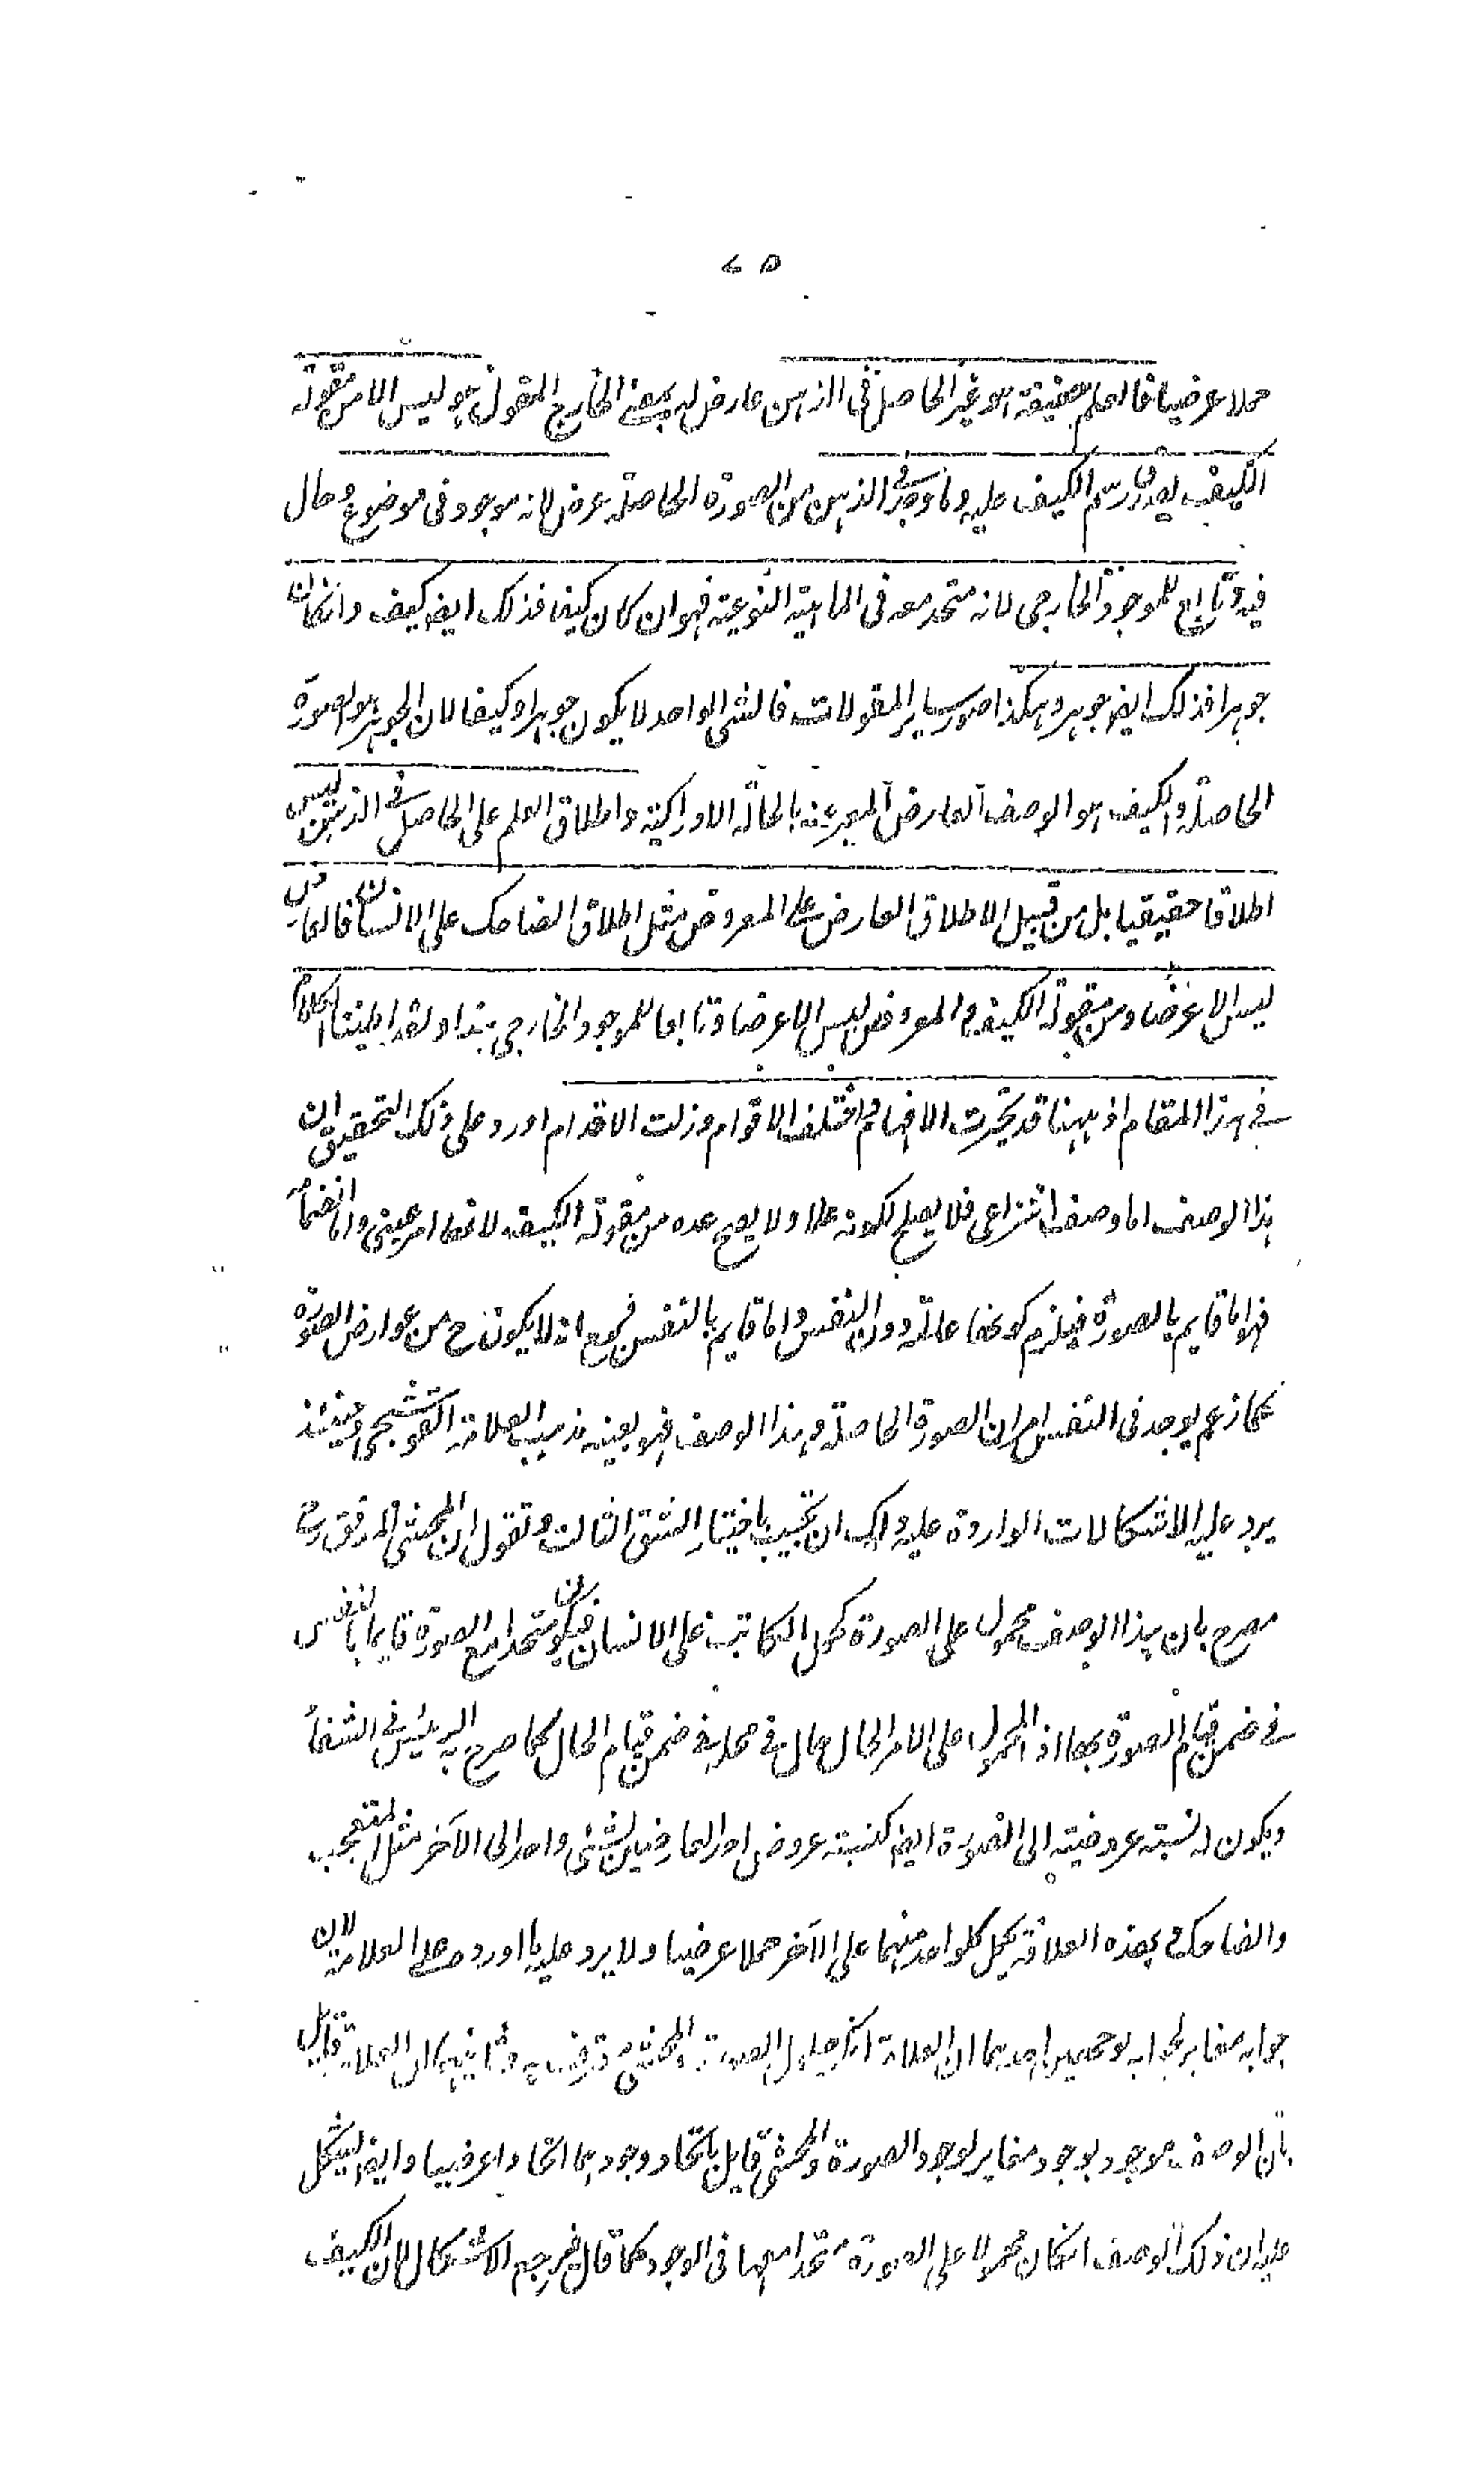 ٧٥
حملا عرضيا فالعلم حقيقة هو غير الحاصل في الذهن عارض له بمعنى الخارج المقول وهو ليس الا من مقولة
الكيف يصدق رسم الكيف عليه وما وجد في الذهن من الصورة الحاصلة عرض لانه موجود في موضوع وحال
فيه وتابع للموجود الخارجي لانه متحد معه في الماهية النوعية فهو ان كان كيفا فذلك ايض كيف وانكان
جوهرا فذلك ايض جوهر وهكذا صور ساير المقولات فالشي الواحد لا يكون جوهرا وكيفا لان الجوهر هو الصورة
الحاصلة والكيف هو الوصف العارض المعبر عنه بالحالة الادراكية واطلاق العلم على الحاصل في الذهن ليس
اطلاقا حقيقيا بل من قبيل الاطلاق العارض على المعروض مثل اطلاق الضاحك على الانسان فالعارض
ليس الا عرضا ومن مقولة الكيف والمعروض ليس الا عرضا وتابعا للموجود الخارجي هذا ولقد اطنبنا الكلام
في هذا المقام اذ ههنا قد تحيرت الافهام واختلف الاقوام وزلت الاقدام اورد على ذلك التحقيق ان
هذا الوصف اما وصف انتزاعي فلا يصلح لكونه علما ولا يصح عده من مقولة الكيف لانها امر عيني واما انضمامي
فهو اما قايم بالصورة فيلزم كونها عالمة دون النفس واما قايم بالنفس فمع انه لا يكون ح من عوارض الصورة
كما زعم يوجد في النفس امران الصورة الحاصلة وهذا الوصف فهو بعينه مذهب العلامة القوشجي وحينئذ
يرد عليه الاشكالات الواردة عليه ولك ان تجيب باختيار الشق الثالث وتقول ان المحشي المدقق
مصرح بان هذا الوصف محمول على الصورة كحمل الكاتب على الانسان فيكون متحدا مع الصورة قايما بالنفس
في ضمن قيام الصورة بها اذ المحمول على الامر الحال حال في محله في ضمن قيام الحال كما صرح به الرئيس في الشفاء
ويكون نسبة عروضيته الى الصورة ايض كنسبة عروض احد العارضين لشئ واحد الى الآخر مثل المتعجب
والضاحك بهذه العلاقة يحمل كلواحد منهما على الآخر حملا عرضيا ولا يرد عليه ما اورد على العلامة لان
جوابه مغاير لجوابه بوجهين احدهما ان العلامة انكر حلول الصورة والمحشي معترف به وثانيهما ان العلامة قايل
بان الوصف موجود بوجود مغاير لوجود الصورة والمحشي قايل باتحاد وجودهما اتحادا عرضيا وايض يشكل
عليه ان ذلك الوصف انكان محمولا على الصورة متحدا معها في الوجود كما قال فيرجع الاشكال لان الكيف